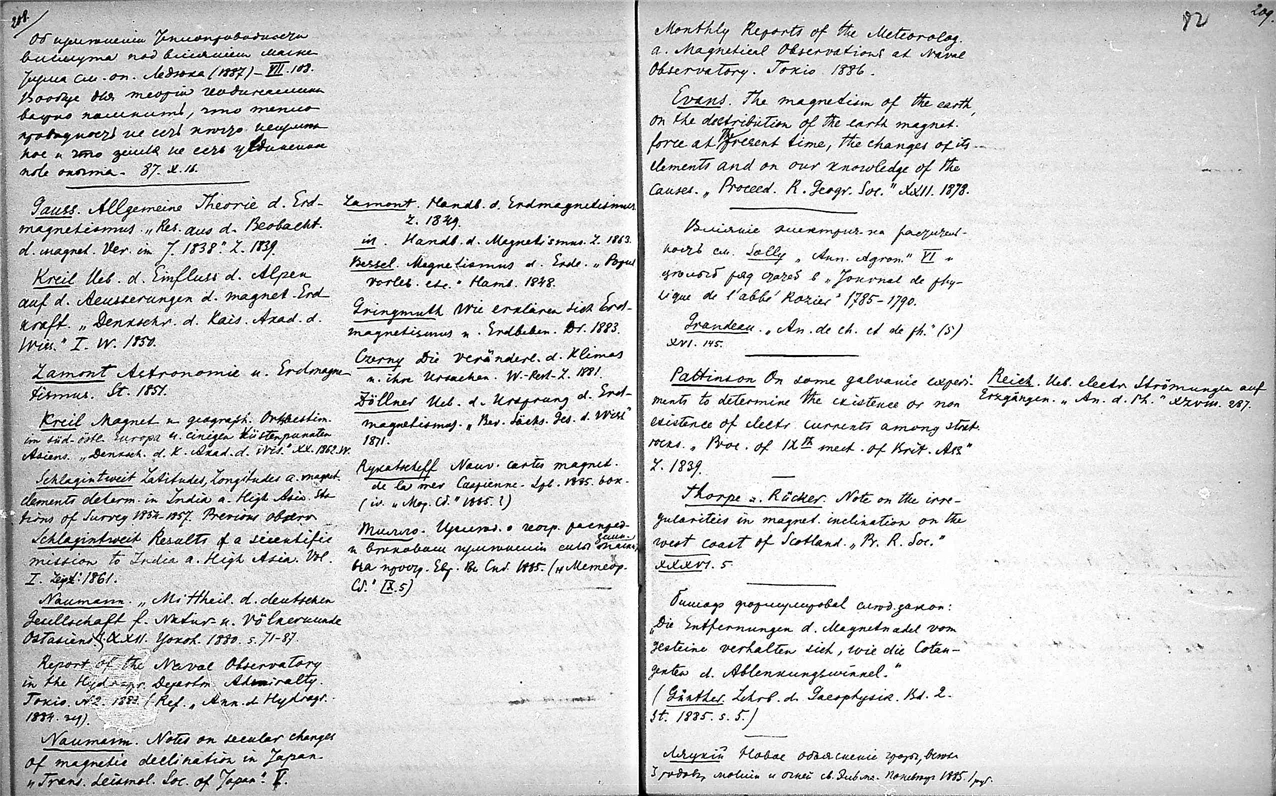 208
Об притяжении
висмута под влиянием магне-
(1887) – VII. 103.
Вообще для теории
важно помнить, что тепло-
не есть
и что земля не есть
87. X. 16.
Gauss. Allgemeine Theorie d. Erd-
magnetismus. „Res. aus d. Beobacht.
d. magnet. Ver. in J. 1838" L. 1839.
Kreil Ueb. d. Einfluss d. Alpen
auf d. Aeusserungen d. magnet. Erd-
kraft. „Denkschr. d. Kais. Akad. d.
Wiss." I. W. 1850.
Lamont Astronomie u. Erdmagne-
tismus. St. 1851.
Kreil Magnet. u. geograph. Ortsbestim.
im süd-östl. Europa u. einigen Küstenpunkten
Asiens. „Denksch. d. K. Akad. d. Wiss." XX. 1862. W.
Schlagintweit Latitudes, Longitudes a. magnet.
elements determ. in India a. High Asia. Sta-
tions of Survey 1854–1857. Previous observ.
Schlagintweit Results of a scientific
mission to India a. High Asia. Vol.
I. Leipz. 1861.
Naumann. „Mittheil. d. deutschen
Gesellschaft f. Natur- u. Völkerkunde
Ostasiens" XXII. Yokoh. 1880. s. 71–87.
Report of the Naval Observatory
in the Hydrogr. Departm. Admiralty.
Tokio. N2. 1883. (Ref. „Ann. d. Hydrogr.
1884.
Naumann. Notes on secular changes
of magnetic declination in Japan
„Trans. Seismol. Soc. of Japan" V.
Lamont. Handb. d. Erdmagnetismus
L. 1849.
id. Handb. d. Magnetismus. L. 1863.
Bessel. Magnetismus d. Erde. „Popul.
vorles. etc." Hamb. 1848.
Gringmuth Wie erklären sich Erd-
magnetismus u. Erdbeben. Dr. 1883.
Czerny Die veränderl. d. Klimas
u. ihre Ursachen. W.-Pest-L. 1881.
Zöllner Ueb. d. Ursprung d. Erd-
magnetismus. „Ber. Sächs. Ges. d. Wiss"
1871.
Rykatscheff Nouv. cartes magnet.
de la mer Caspienne. Spb. 1885. box.
(iv. „Мор. Сб." 1885. ?)
Тилло. о геогр. распред.
и вековом силы земн.
1885. („Мемор.
Сб." IX. 5)
82
209.
Monthly Reports of the Meteorolog.
a. Magnetical Observations at Naval
Observatory. Tokio. 1886.
Evans. The magnetism of the earth,
on the distribution of the earth magnet.
force at the present time, the changes of its
elements and on our knowledge of the
causes. „Proceed. R. Geogr. Soc." XXII. 1878.
Влияние электрич. на
см. Solly „Ann. Agron." VI и
ряд статей в „Journal de phy-
sique de l'abbé Rozier" 1785–1790.
Grandeau. „An. de ch. et de ph." (5)
XVI. 145.
Pattinson On some galvanic experi-
ments to determine the existence or non
existence of electr. currents among strat.
rocks. „Proc. of IXth meet. of Brit. Ass."
L. 1839.
Thorpe a. Rücker. Note on the irre-
gularities in magnet. inclination on the
west coast of Scotland. „Pr. R. Soc."
XXXVI. 5
формулировал след. закон:
„Die Entfernungen d. Magnetnadel vom
Gesteine verhalten sich, wie die Cotan-
genten d. Ablenkungswinkel."
(Günther. Lehrb. d. Geophysik. Bd. 2.
St. 1885. s. 5.)
Новое объяснение
молнии и огней св. Эльма. 1885
Reich. Ueb. electr. Strömungen auf
Erzgängen. „An. d. Ph." XLVIII. 287.